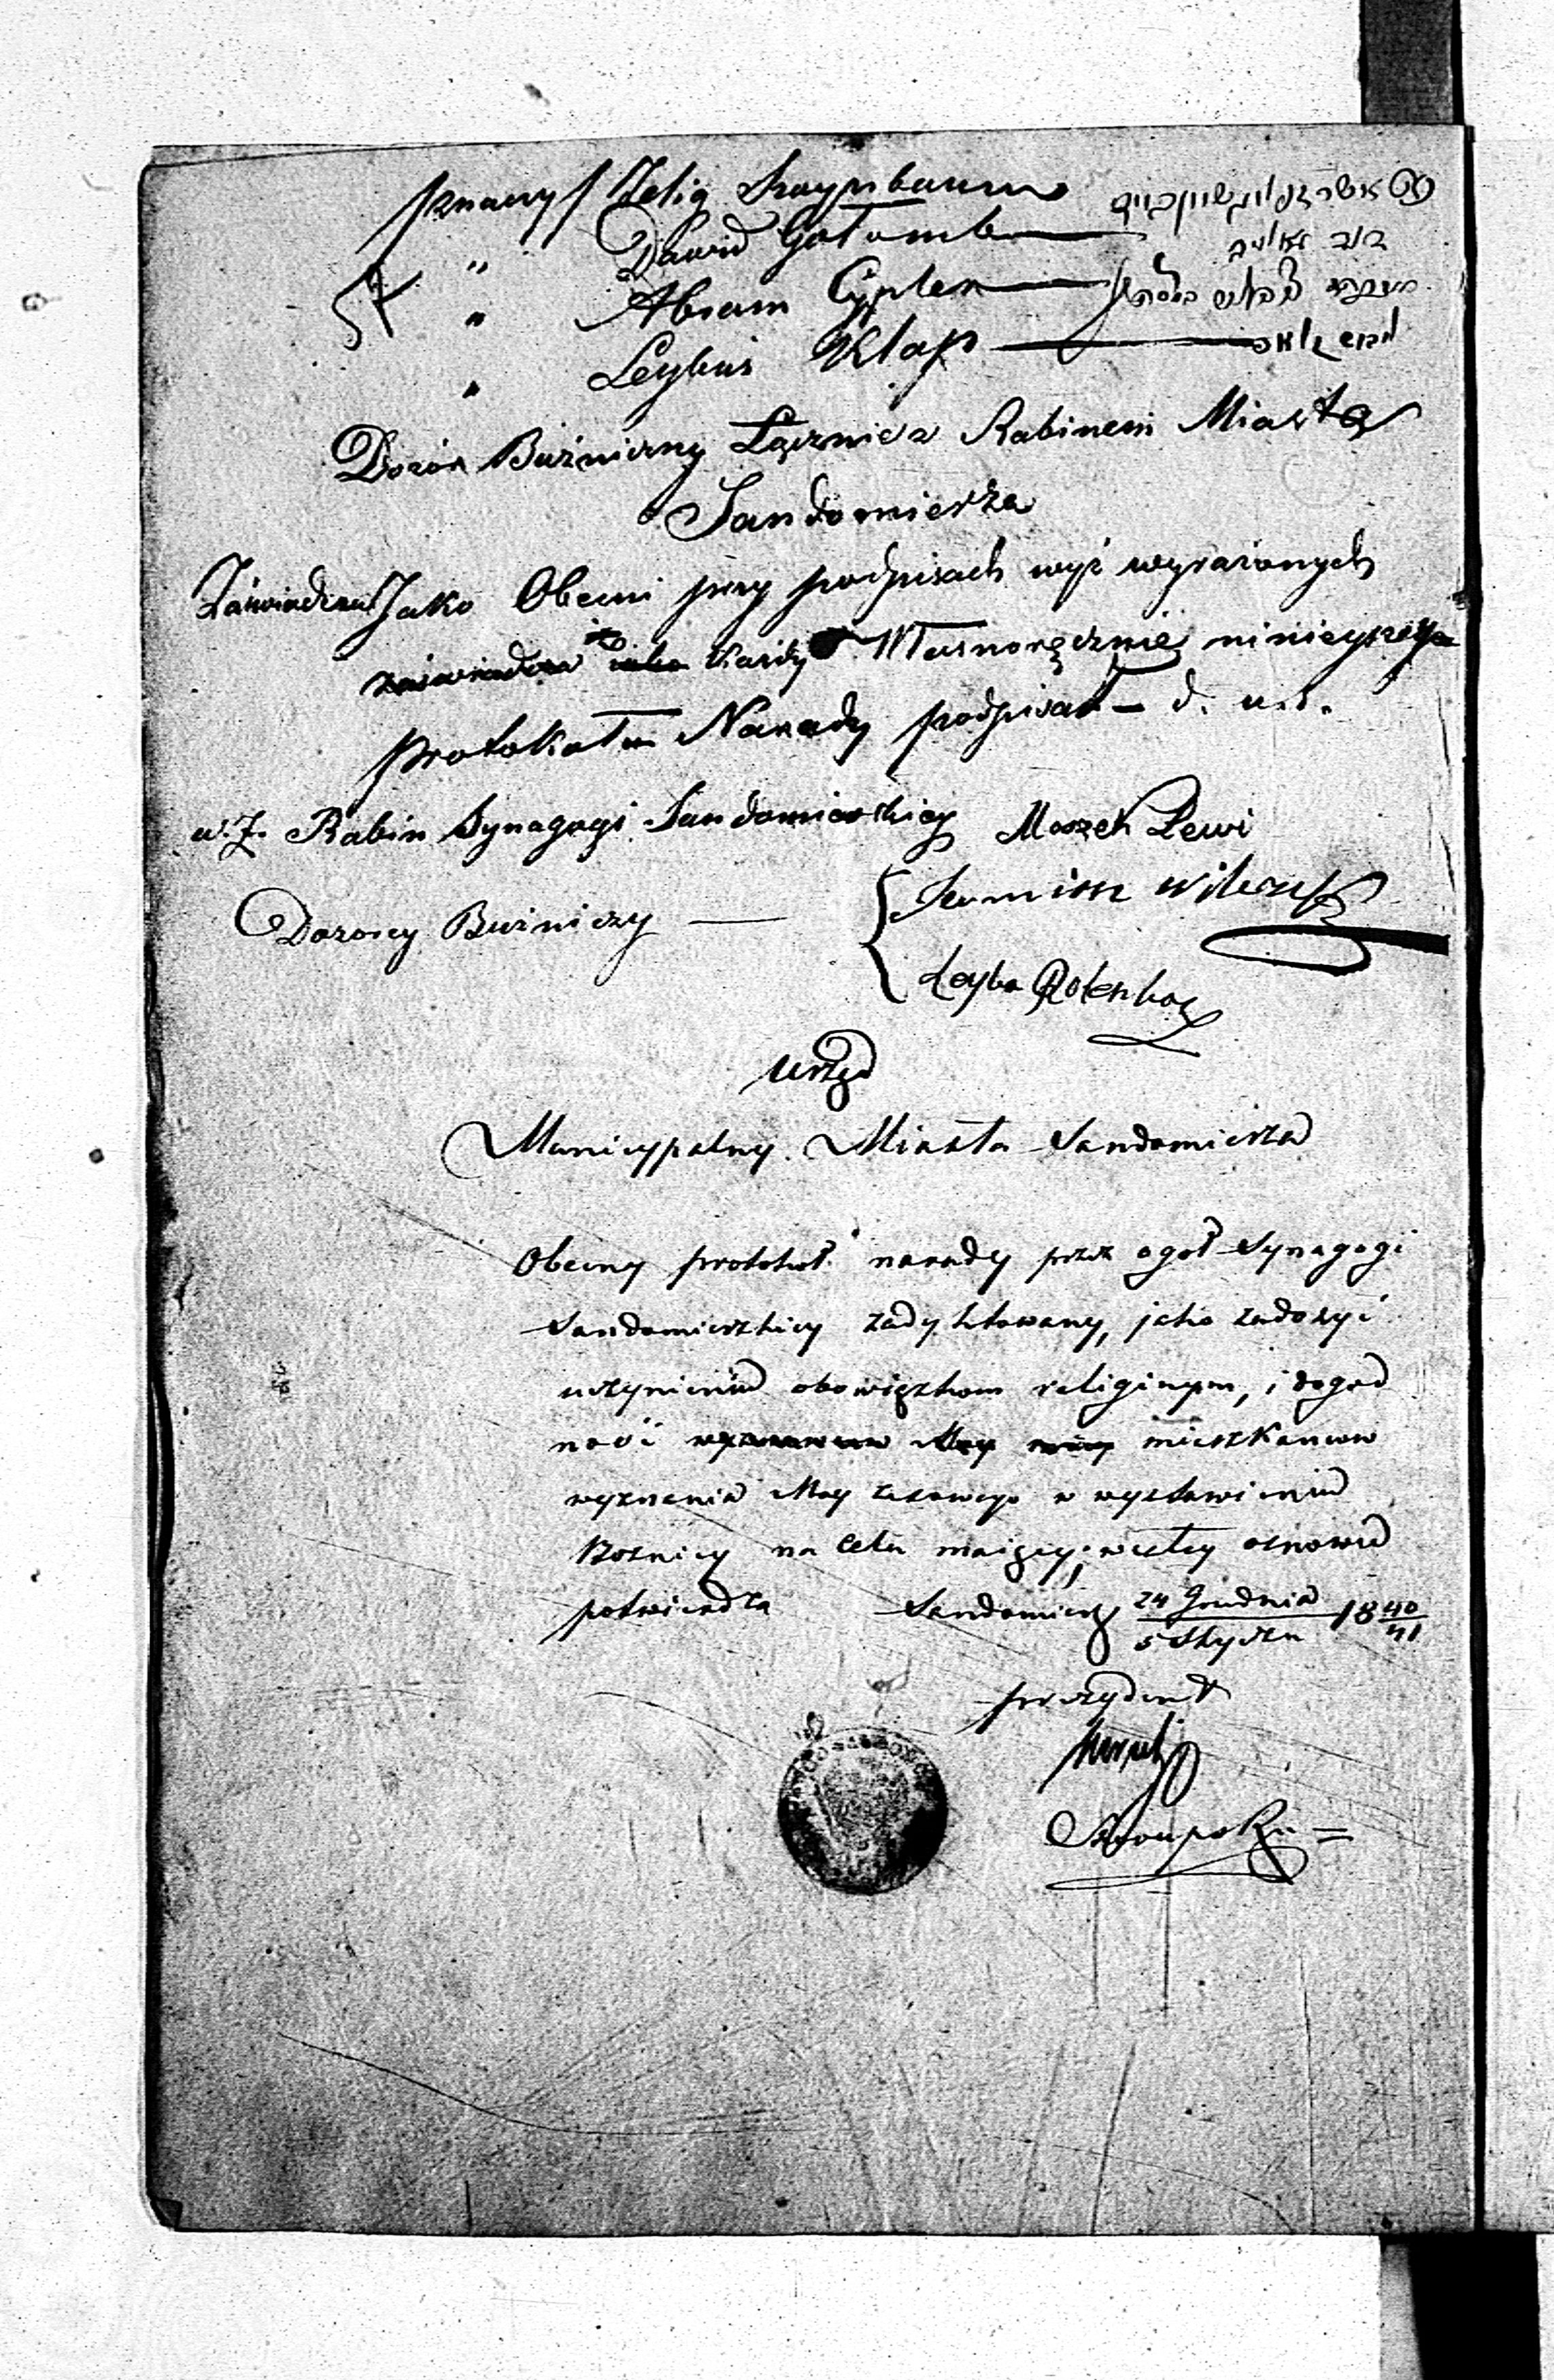 /Znaczy/ Zelig Szaynbaum
" Dawid Gołomb דוד
" Abram Cypler
" Leybuś Kłap
Dozór Bużniczny Łącznie z Rabinem Miasta
Sandomierza
Zaświadcza Jako Obecni przy podpisach wyż wyrażonych
zaświadcza iż każdy Własnoręcznie ninieyszego
protokołu Narady podpisał — d. u. s.
w. z. Rabin Synagogi Sandomierskiey Moszek Lewi
Dozorcy Bużniczy — Leyba
Urząd
Municypalny Miasta Sandomierza
Obecny protokoł narady przez ogoł Synagogi
Sandomierskiey zadyktowany, jako zadosyć
uczynieniu obowiązkom religinym, i dogod
ność mieszkancow
wyznania Moyżeszowego w wystawieniu
Boznicy na celu maiący; w całey osnowie
potwierdza Sandomierz 24 Grudnia / 5 Stycznia 18 40/41
prezydent